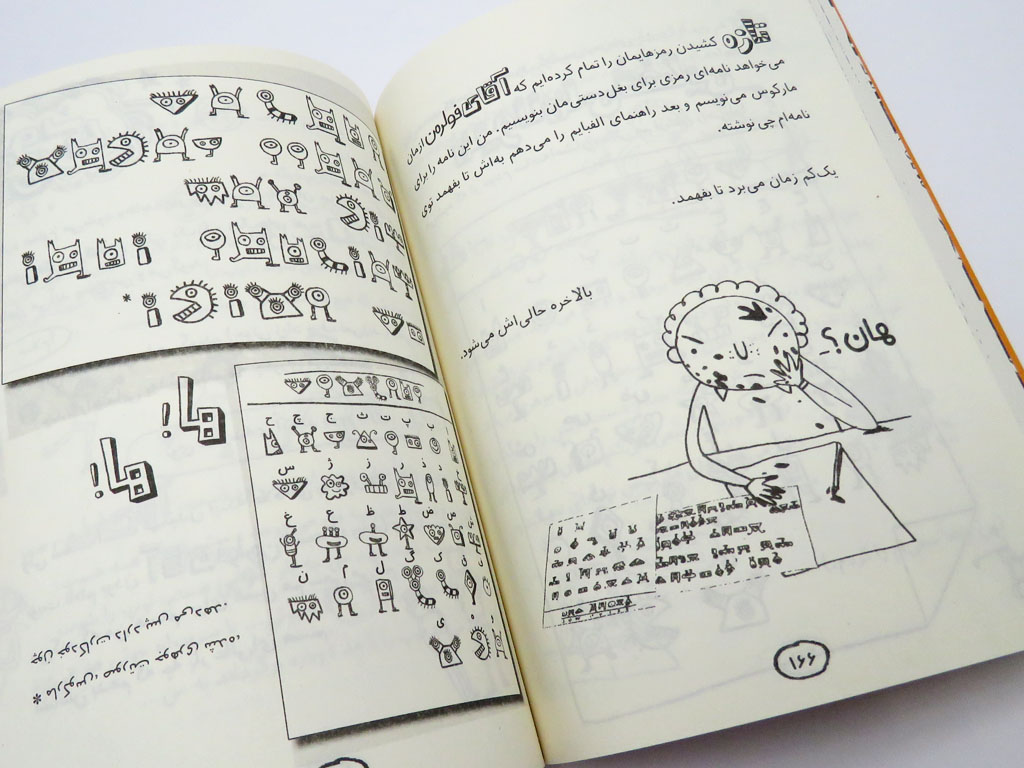 تازه کشیدن رمزهایمان را تمام کرده‌ایم که آقای فولرمن ازمان
می‌خواهد نامه‌ای رمزی برای بغل‌دستی‌مان بنویسیم. من این نامه را برای
مارکوس می‌نویسم و بعد راهنمای الفبایم را می‌دهم به‌اش تا بفهمد توی
نامه‌ام چی نوشته.
یک‌کم زمان می‌برد تا بفهمد.
هان؟
بالاخره حالی‌اش می‌شود.
۱۶۶
ب پ ت ث ج چ ح
ر ز ژ س
ض ط ظ ع غ
ل م ن
ی
ها!
ها!
* مارکوس، صورتت جوهری شده،
چون خودکارت دارد پس می‌دهد.